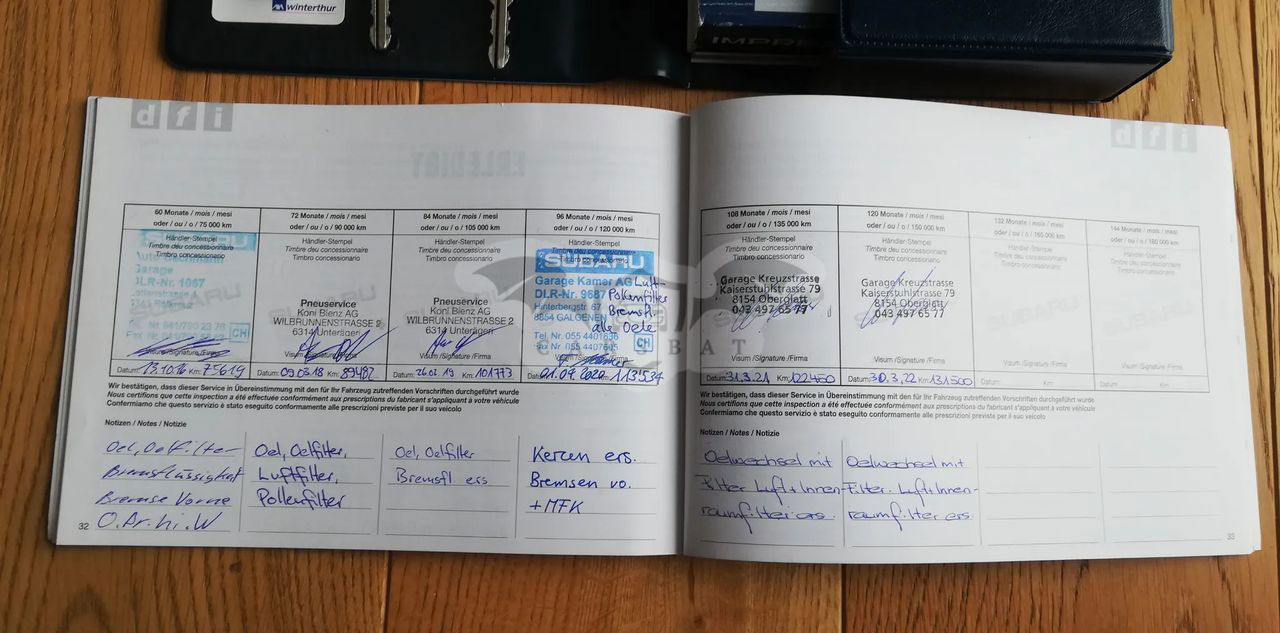 winterthur
IMPRE
dfi
dfi
ERLEDIGT
60 Monate / mois / mesi
oder / ou / o / 75 000 km
Händler-Stempel
Timbre deu concessionnaire
Timbro concessionario
SUBARU
Garage
DLR-Nr. 1067
CH
Visum/Signature/Firma
Datum: 13.10.16 Km: 75619
72 Monate / mois / mesi
oder / ou / o / 90 000 km
Händler-Stempel
Timbre deu concessionnaire
Timbro concessionario
Pneuservice
Koni Bienz AG
WILBRUNNENSTRASSE 2
6314 Unterägeri
Visum /Signature /Firma
Datum: 09.05.18 Km: 89482
84 Monate / mois / mesi
oder / ou / o / 105 000 km
Händler-Stempel
Timbre deu concessionnaire
Timbro concessionario
Pneuservice
Koni Bienz AG
WILBRUNNENSTRASSE 2
6314 Unterägeri
Visum /Signature /Firma
Datum: 26.02.19 Km: 101773
96 Monate / mois / mesi
oder / ou / o / 120 000 km
Händler-Stempel
Timbre deu concessionnaire
Timbro concessionario
SUBARU
Garage Kamer AG
DLR-Nr. 9687
Hinterbergstr. 67
8854 GALGENEN
Tel. Nr 055 4401636
CH
Luft-
Pollenfilter
Bremsfl.
alle Oele
Visum /Signature /Firma
Datum: 01.09.2020 113534
108 Monate / mois / mesi
oder / ou / o / 135 000 km
Händler-Stempel
Timbre deu concessionnaire
Timbro concessionario
Garage Kreuzstrasse
Kaiserstuhlstrasse 79
8154 Oberglatt
043 497 65 77
Visum /Signature /Firma
Datum: 31.3.21 Km: 122450
120 Monate / mois / mesi
oder / ou / o / 150 000 km
Händler-Stempel
Timbre deu concessionnaire
Timbro concessionario
Garage Kreuzstrasse
Kaiserstuhlstrasse 79
8154 Oberglatt
043 497 65 77
Visum /Signature /Firma
Datum: 30.3.22 Km: 131500
132 Monate / mois / mesi
oder / ou / o / 165 000 km
Händler-Stempel
Timbre deu concessionnaire
Timbro concessionario
Visum /Signature /Firma
Datum: Km:
144 Monate / mois / mesi
oder / ou / o / 180 000 km
Händler-Stempel
Timbre deu concessionnaire
Timbro concessionario
Visum /Signature /Firma
Datum: Km:
Wir bestätigen, dass dieser Service in Übereinstimmung mit den für Ihr Fahrzeug zutreffenden Vorschriften durchgeführt wurde
Nous certifions que cette inspection a été effectuée conformément aux prescriptions du fabricant s'appliquant à votre véhicule
Confermiamo che questo servizio è stato eseguito conformamente alle prescrizioni previste per il suo veicolo
Wir bestätigen, dass dieser Service in Übereinstimmung mit den für Ihr Fahrzeug zutreffenden Vorschriften durchgeführt wurde
Nous certifions que cette inspection a été effectuée conformément aux prescriptions du fabricant s'appliquant à votre véhicule
Confermiamo che questo servizio è stato eseguito conformamente alle prescrizioni previste per il suo veicolo
Notizen / Notes / Notizie
Oel, Oelfilter
Bremsflüssigkeit
Bremse Vorne
Oel, Oelfilter,
Luftfilter,
Pollenfilter
Oel, Oelfilter
Bremsfl ers
Kerzen ers.
Bremsen vo.
+ MFK
Notizen / Notes / Notizie
Oelwechsel mit
Filter Luft + Innen-
raumfilter ers.
Oelwechsel mit
Filter. Luft + Innen-
raumfilter ers.
32
33